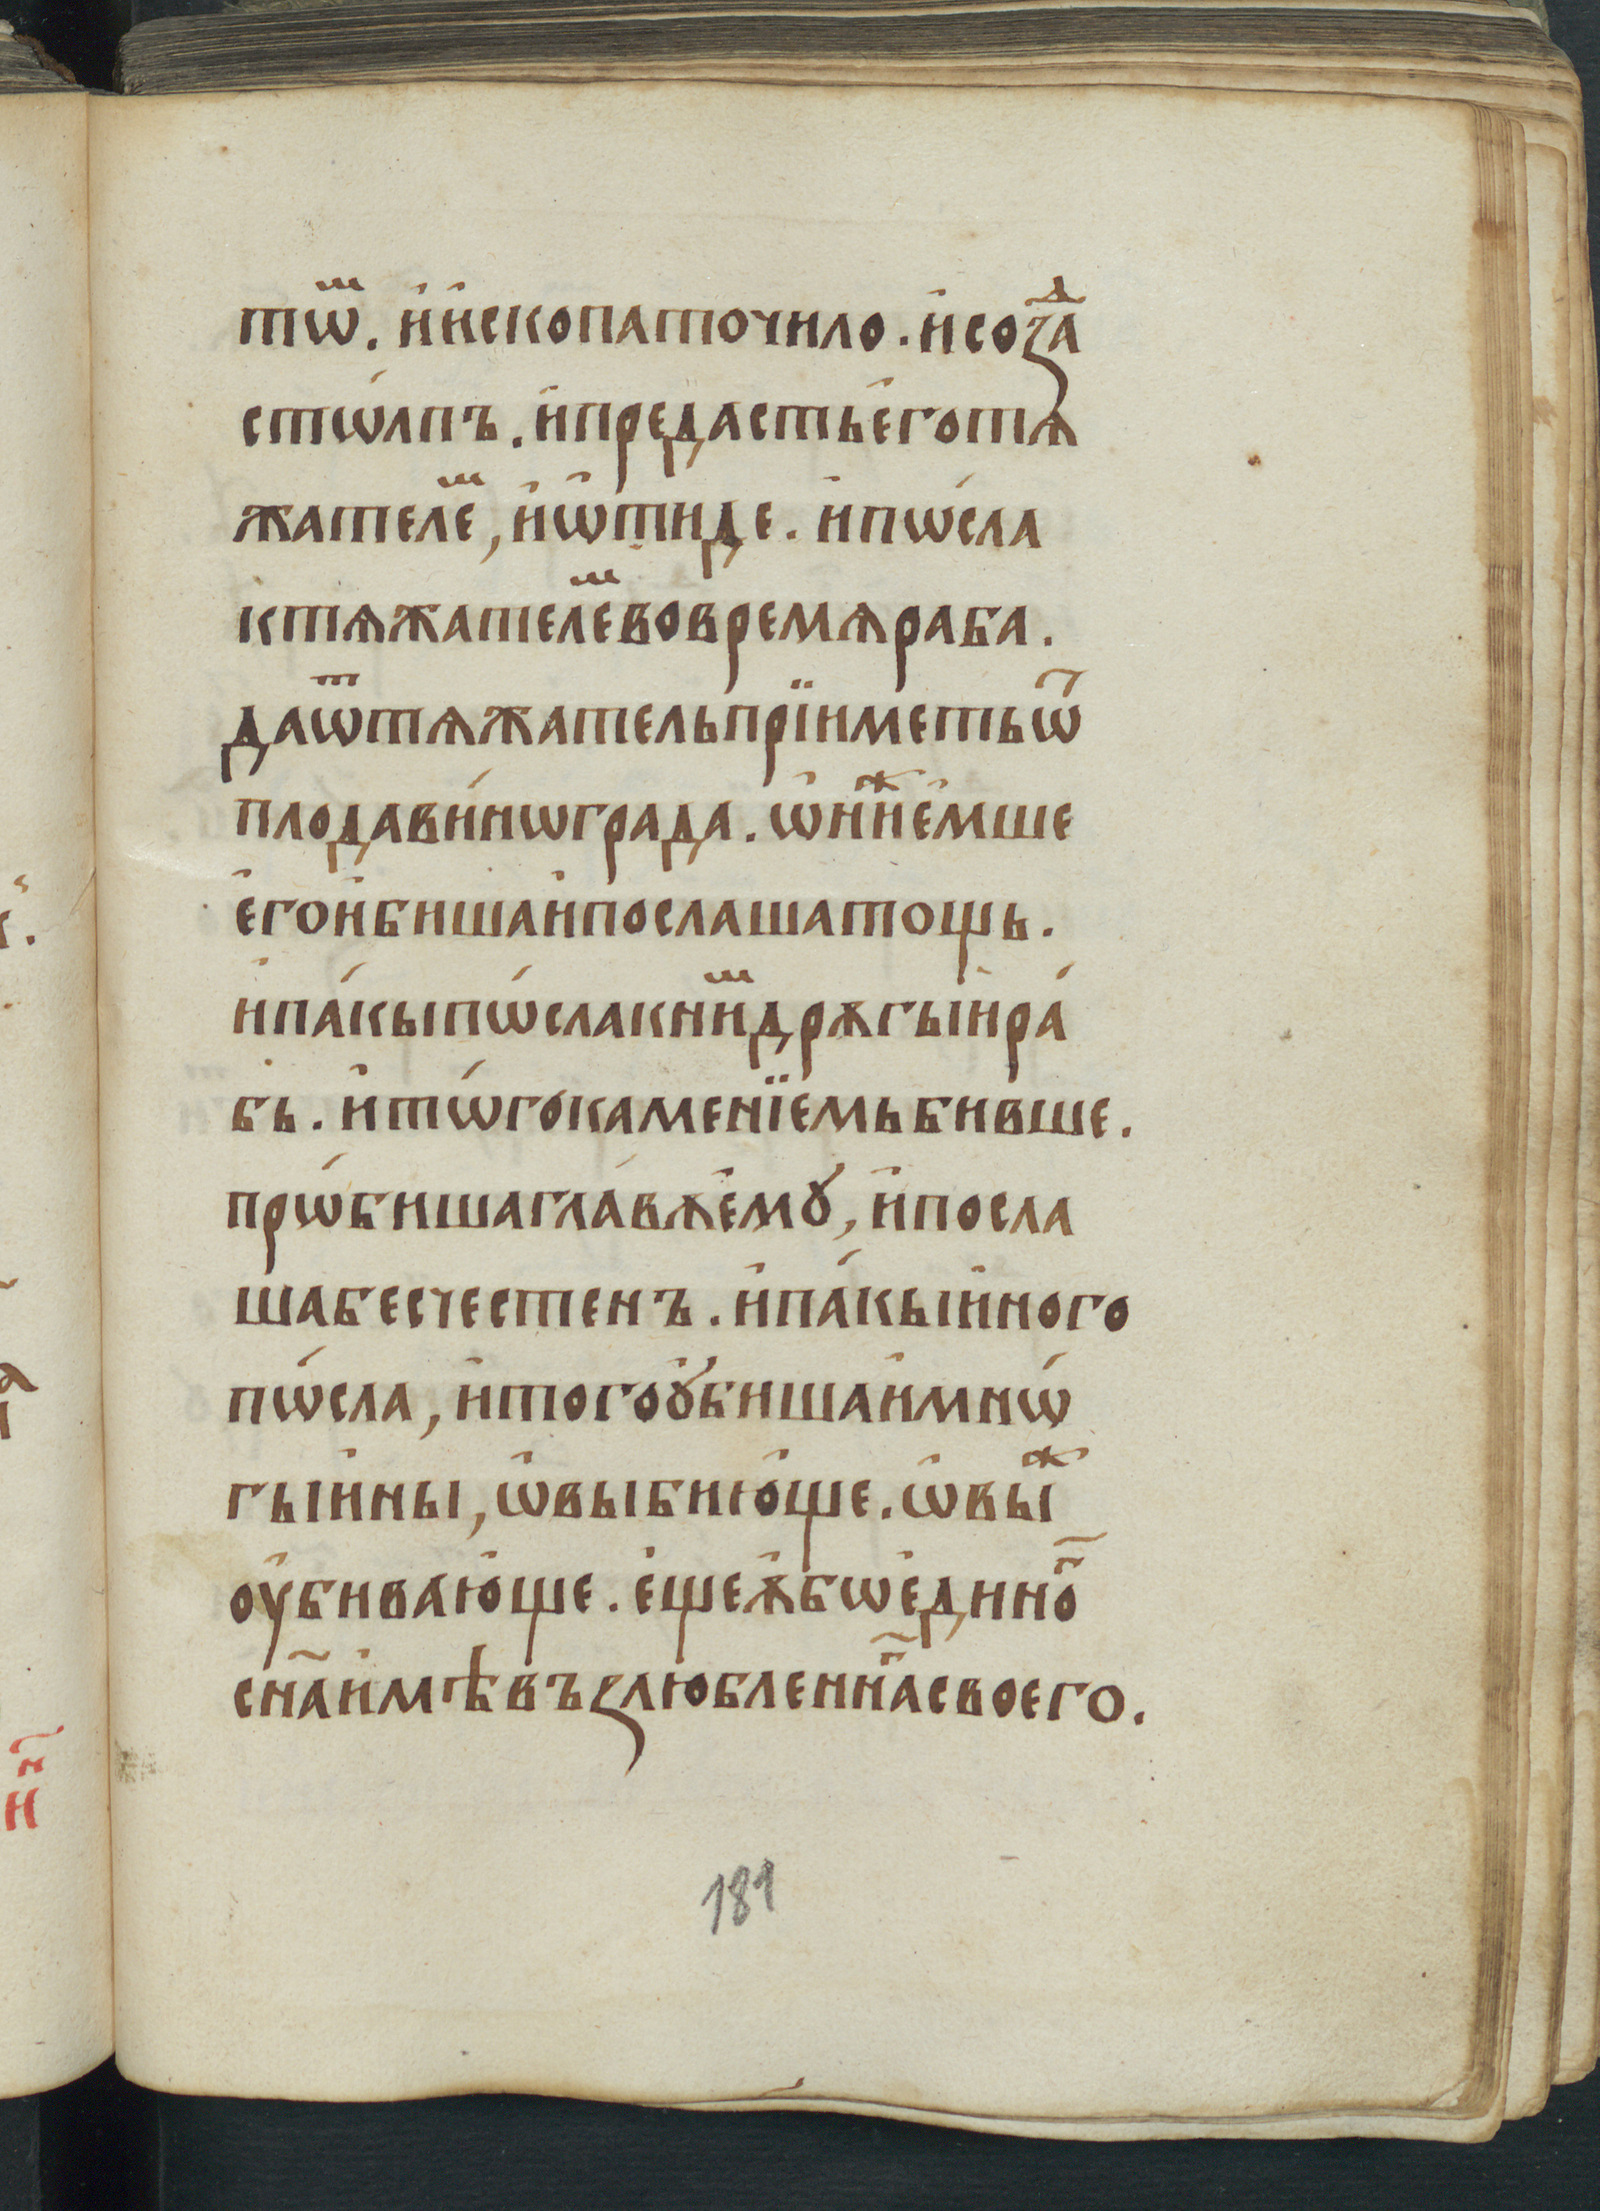 тѡⷨ. и҆и҆скопаточило. и҆соꙁаⷣ
стѡ́лпъ. и҆предастье҆готѧ
жателеⷨ, и҆ѡ҆тиде. и҆пѡ́сла
ктѧжателеⷨвовремѧраба.
даѿтѧжательпрїиметьѿ
плодави́нѡграда. ѡ҆ниⷤе҆мше
е҆гои҆бишаи҆послашатощь.
и҆па́кыпѡ́слакниⷨдрѫгыи҆ра́
бь. и҆тѡ́гокаменїемьбивше.
прѡ́бишагла́вѫе҆мꙋ, и҆посла
шабесчестенъ. и҆па́кыи҆ного
пѡ́сла, и҆тогоꙋ҆бишаи҆мнѡ́
гыи҆ны, ѡ҆выбию҆ще. ѡ҆выⷤ
оу҆бивающе. е҆щеѫ҆бѡе҆дино҃
сн҃аи҆мѣвъꙁлюбленн҃асвоего.
181